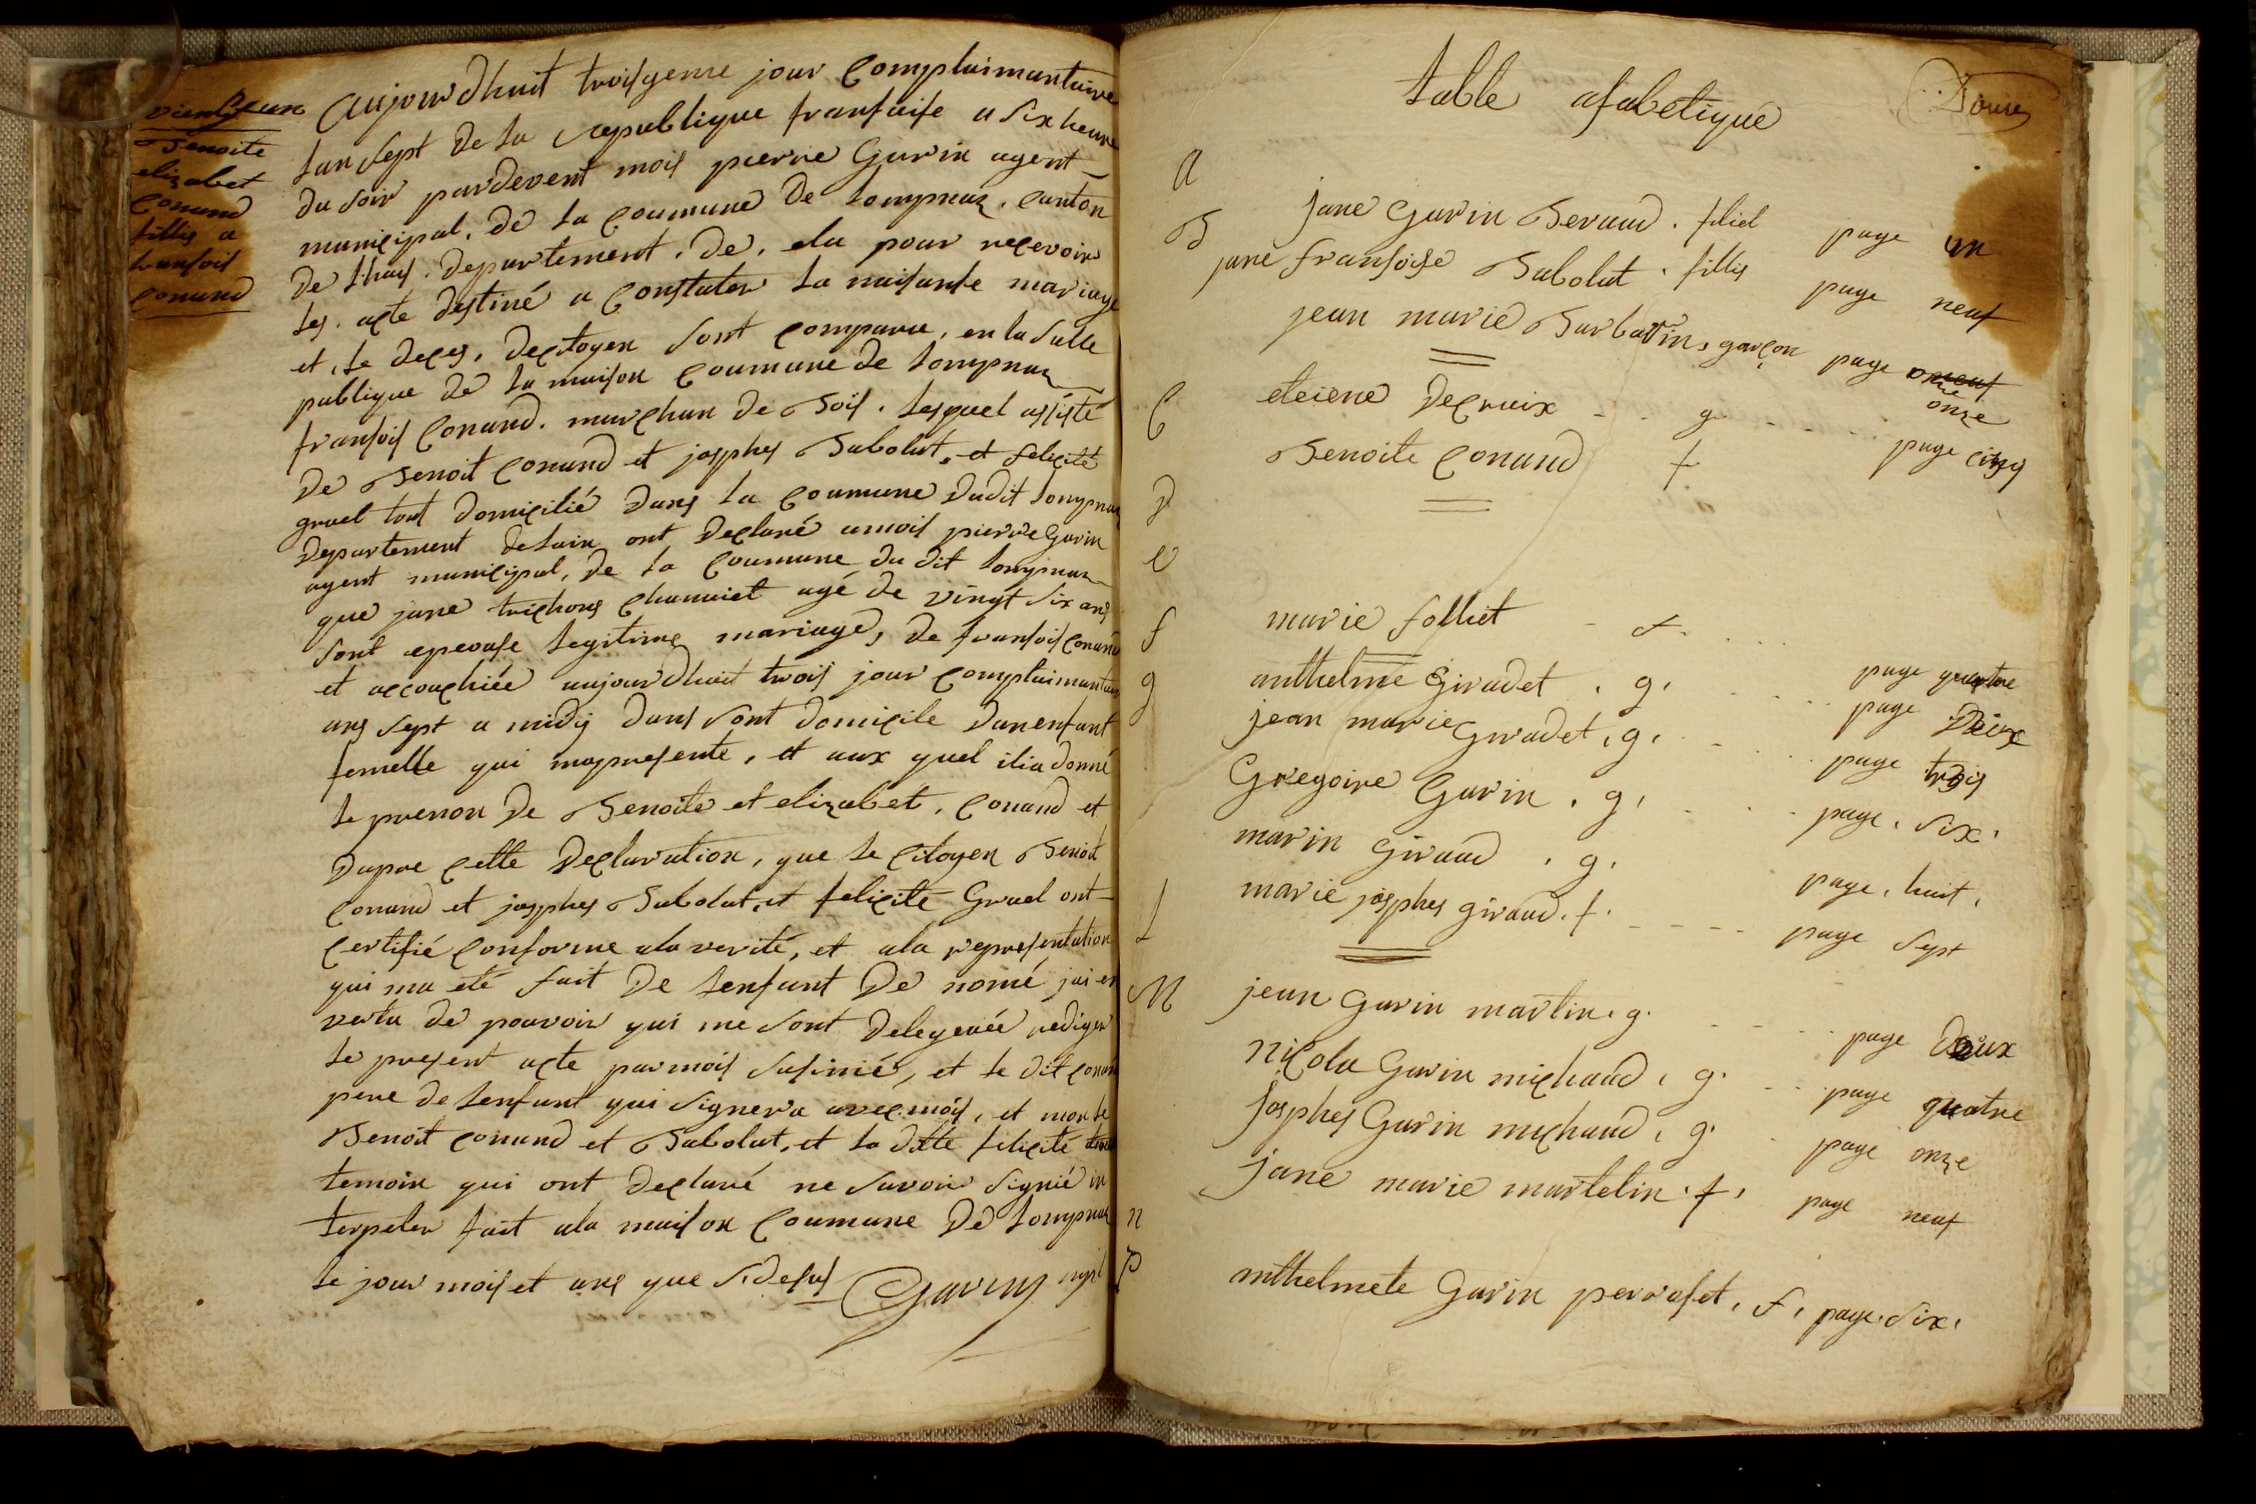 vient et un
Benoite
elizabet
Conand
fillis a
fransois
Conand
aujourdhuit troisyeme jour Complaimantaire
lan sept de la republique fransaise a six heure
du soir pardevent mois pierre Gavin agent
municipal. de la Coumune de Lompnaz. Canton
de lhuis. departement. de. elu pour recevoir
les. acte destiné a Constater la naisanse mariage
et, le deces, decitoyen sont comparu, en la salle
publique de la maison Coumune de Lompnaz
fransois Conand. marchan de Bois. lesquel assisté
de Benoit Conand et josphes Babolat, et felicité
gruel tout domicilié dans la Coumune dudit Lompnaz
departement delain ont declaré amois pierre Gavin
agent municipal, de la Coumune du dit Lompnaz
que jane trichons Chamiet agé de vingt six ans
sont epeouse legitime mariage, de fransois Conand
et accouchiée aujourdhuit trois jour Complaimantaire
ans sept a midij dans sont domicile dun enfant
femelle qui mapresente, et aux quel ilia donné
le prenon de Benoite et elizabet, Conand et
dapre cette declaration, que le Citoyen Benoit
Conand et josphes Babolat, et felicité Gruel ont
certifié Conforme ala verité, et ala representation
qui ma eté fait de lenfant de nomé, jai en
vertu de pouvoir qui me sont delegeuée rediger
le present acte par mois susinié, et le dit Conand
pere de lenfant qui signera avec mois, et mon le
Benoit Conand et Babolat, et la ditte felicité
temoin qui ont declaré ne savoir signié in
terpeler fait ala maison Coumune de Lompnaz
le jour mois et ans que sidesus Gavin
table afabetique
Douze
a
B jane Gavin Beraud. filiel page un
jane fransoise Babolat. fillis page neuf
jean marie Barbarin, garçon page onze
C eteiene Decroix - - g - - - onze
Benoite Conand f page cinq
D
e
f marie folliet - f. . .
g anthelme Giradet. g. - - page quatre
jean marie Giradet, g. - - page Deux
Gregoire Gavin. g, - - page trois
marin Giraud. g. page. six.
marie josphes giraud. f. page. huit,
L - - - - page sept
M jean Gavin martin. g. - - - page Deux
nicola Gavin michaud, g. - - page quatre
josphes Gavin michaud, g. page onze
jane marie martelin. f, page neuf
n
P anthelmete Gavin perraset, f, page, six,